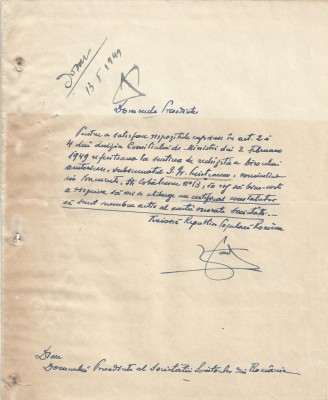 13 V 1949
Domnule Președinte
Pentru a satisface dispozițiile cuprinse în art. 2 și
4 din decizia Consiliului de Miniștri din 2 Februarie
1949 referitoare la scutirea de redevență a biroului
scriitoricesc, subsemnatul I. Gr. domiciliat
în București, Str. Cobălcescu No 13, vă rog să binevoiți
a dispune să mi se elibereze un certificat constatator
că sunt membru activ al acestei onorate Societăți.
Trăiască Republica Populară Română
D-sale
Domnului Președinte al Societății Scriitorilor din România